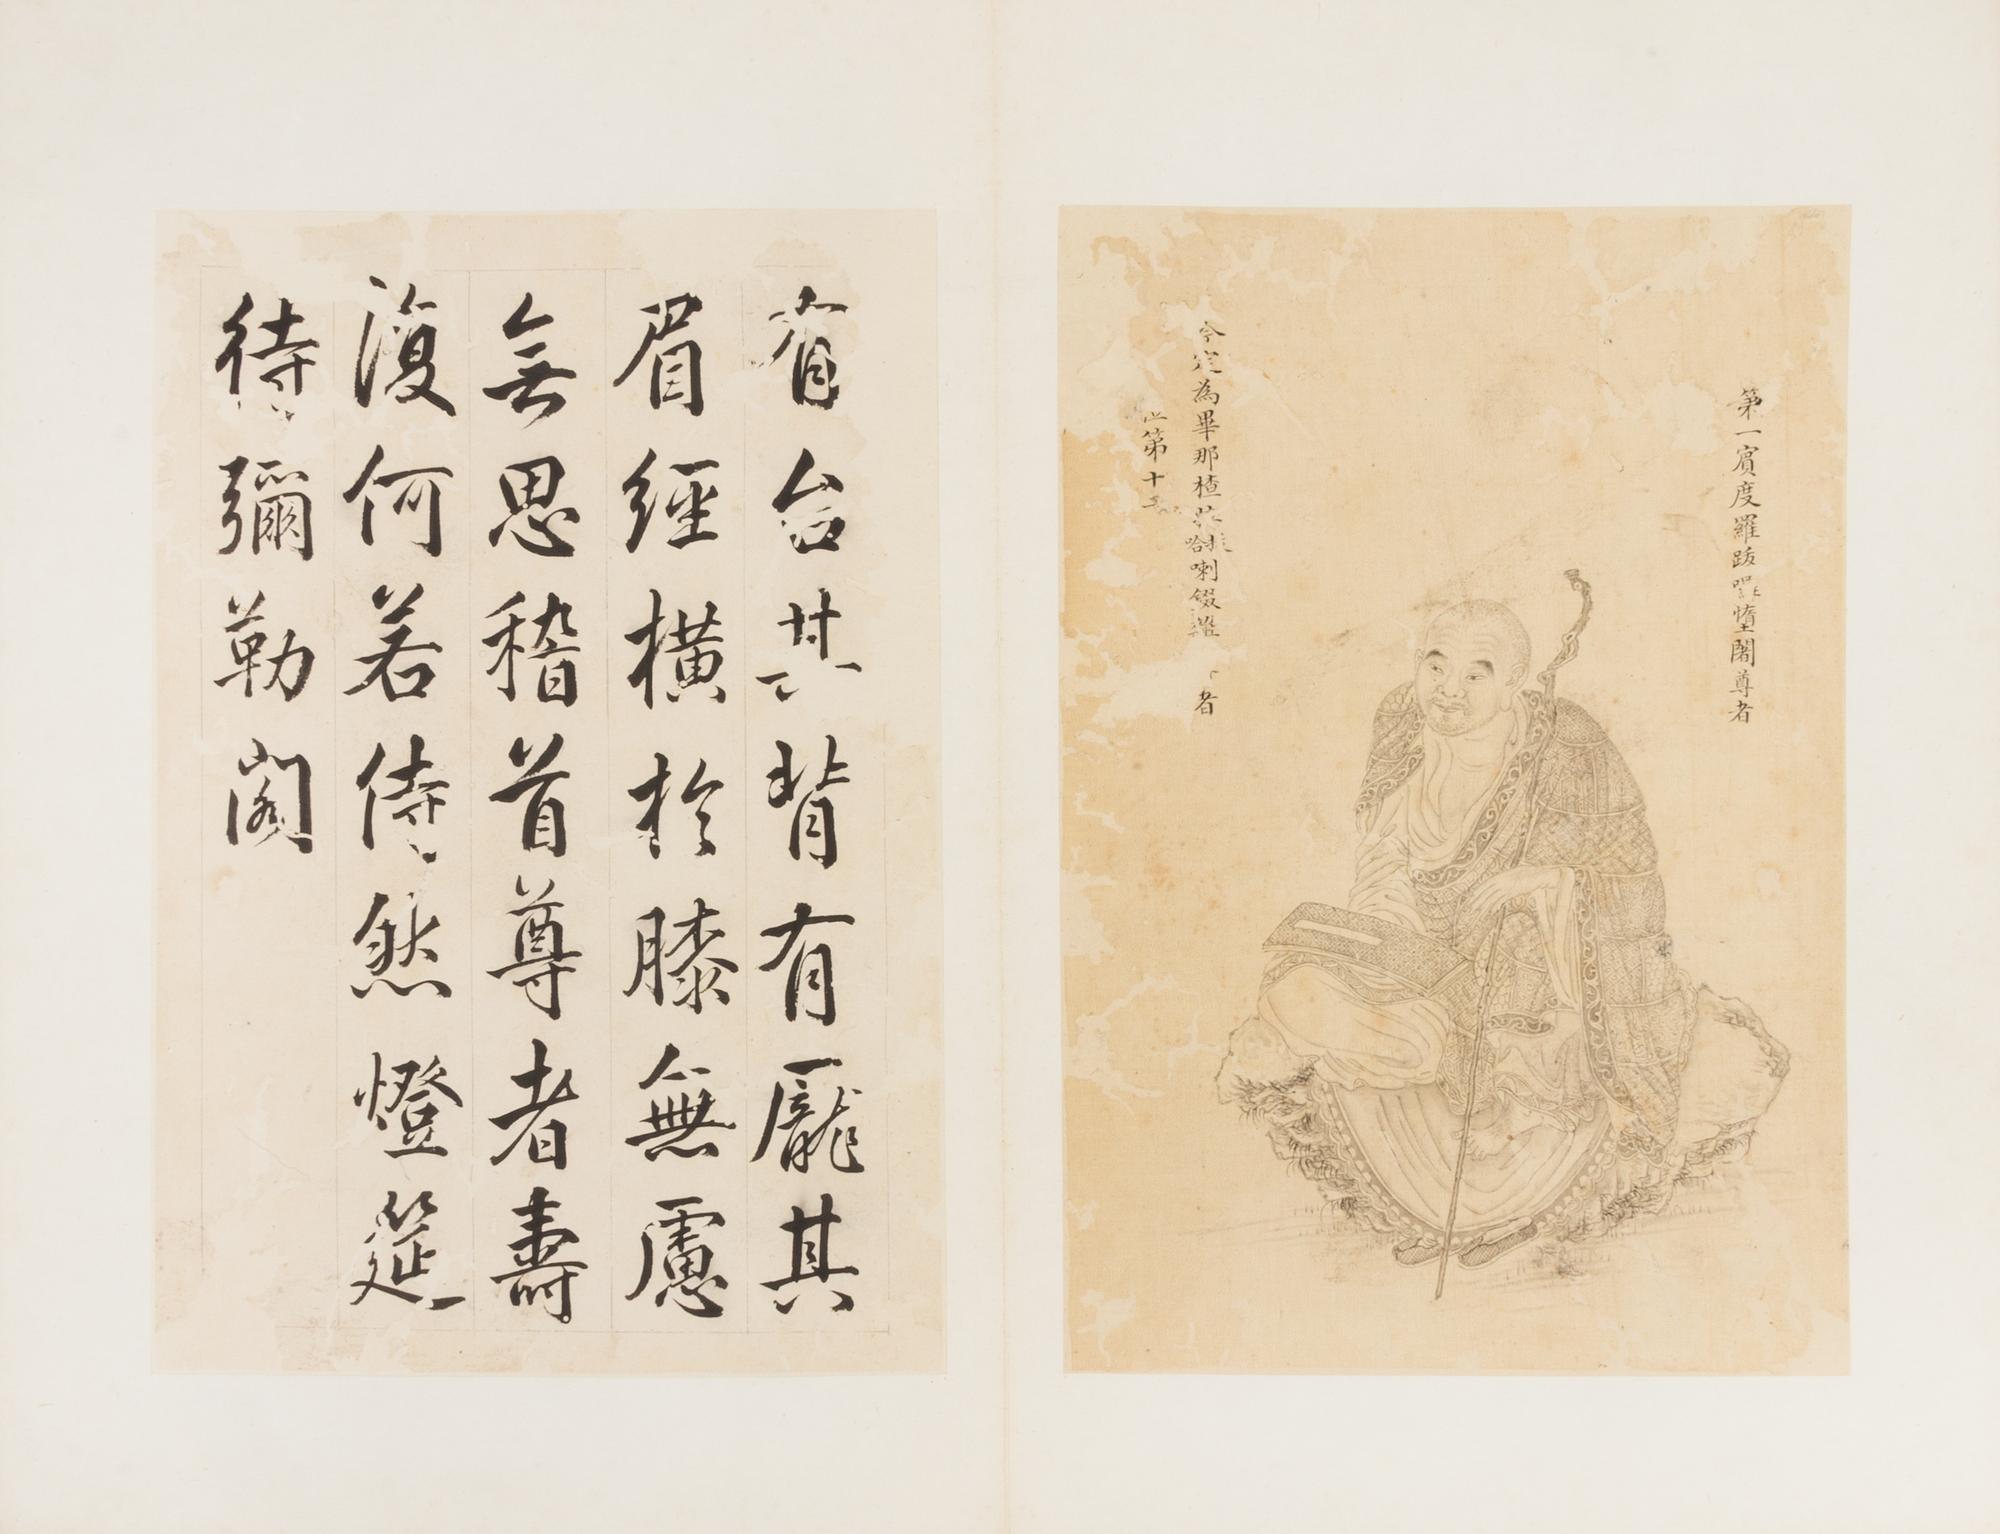 第一賓度羅跋囉墮闍尊者
今定為畢那楂拔哈喇錣雜 者
位第十五
有台其背有龐其
眉經橫於膝無慮
無思稽首尊者壽
復何若侍然燈筵
待彌勒閣